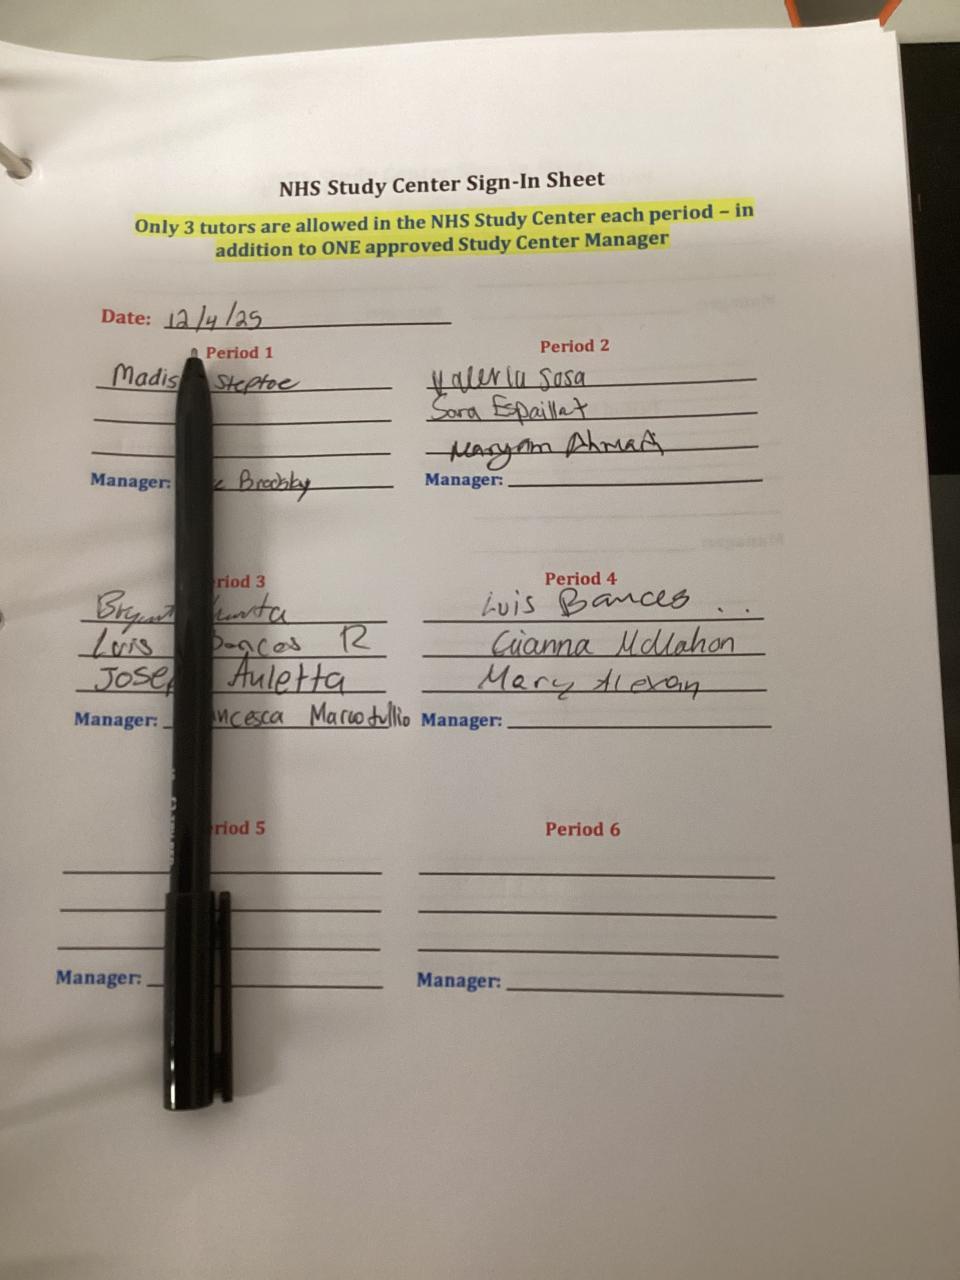 NHS Study Center Sign-In Sheet
Only 3 tutors are allowed in the NHS Study Center each period – in
addition to ONE approved Study Center Manager
Date: 12/4/25
Period 1
Madis Steptoe
Manager: Brodsky
Period 2
Valeria Sosa
Sara Espaillat
Maryam Ahmad
Manager:
riod 3
Luis R
Jose Auletta
Manager: ncesca Marcotullio
Period 4
Luis Bances ..
Gianna McMahon
Mary Alexan
Manager:
riod 5
Manager:
Period 6
Manager: